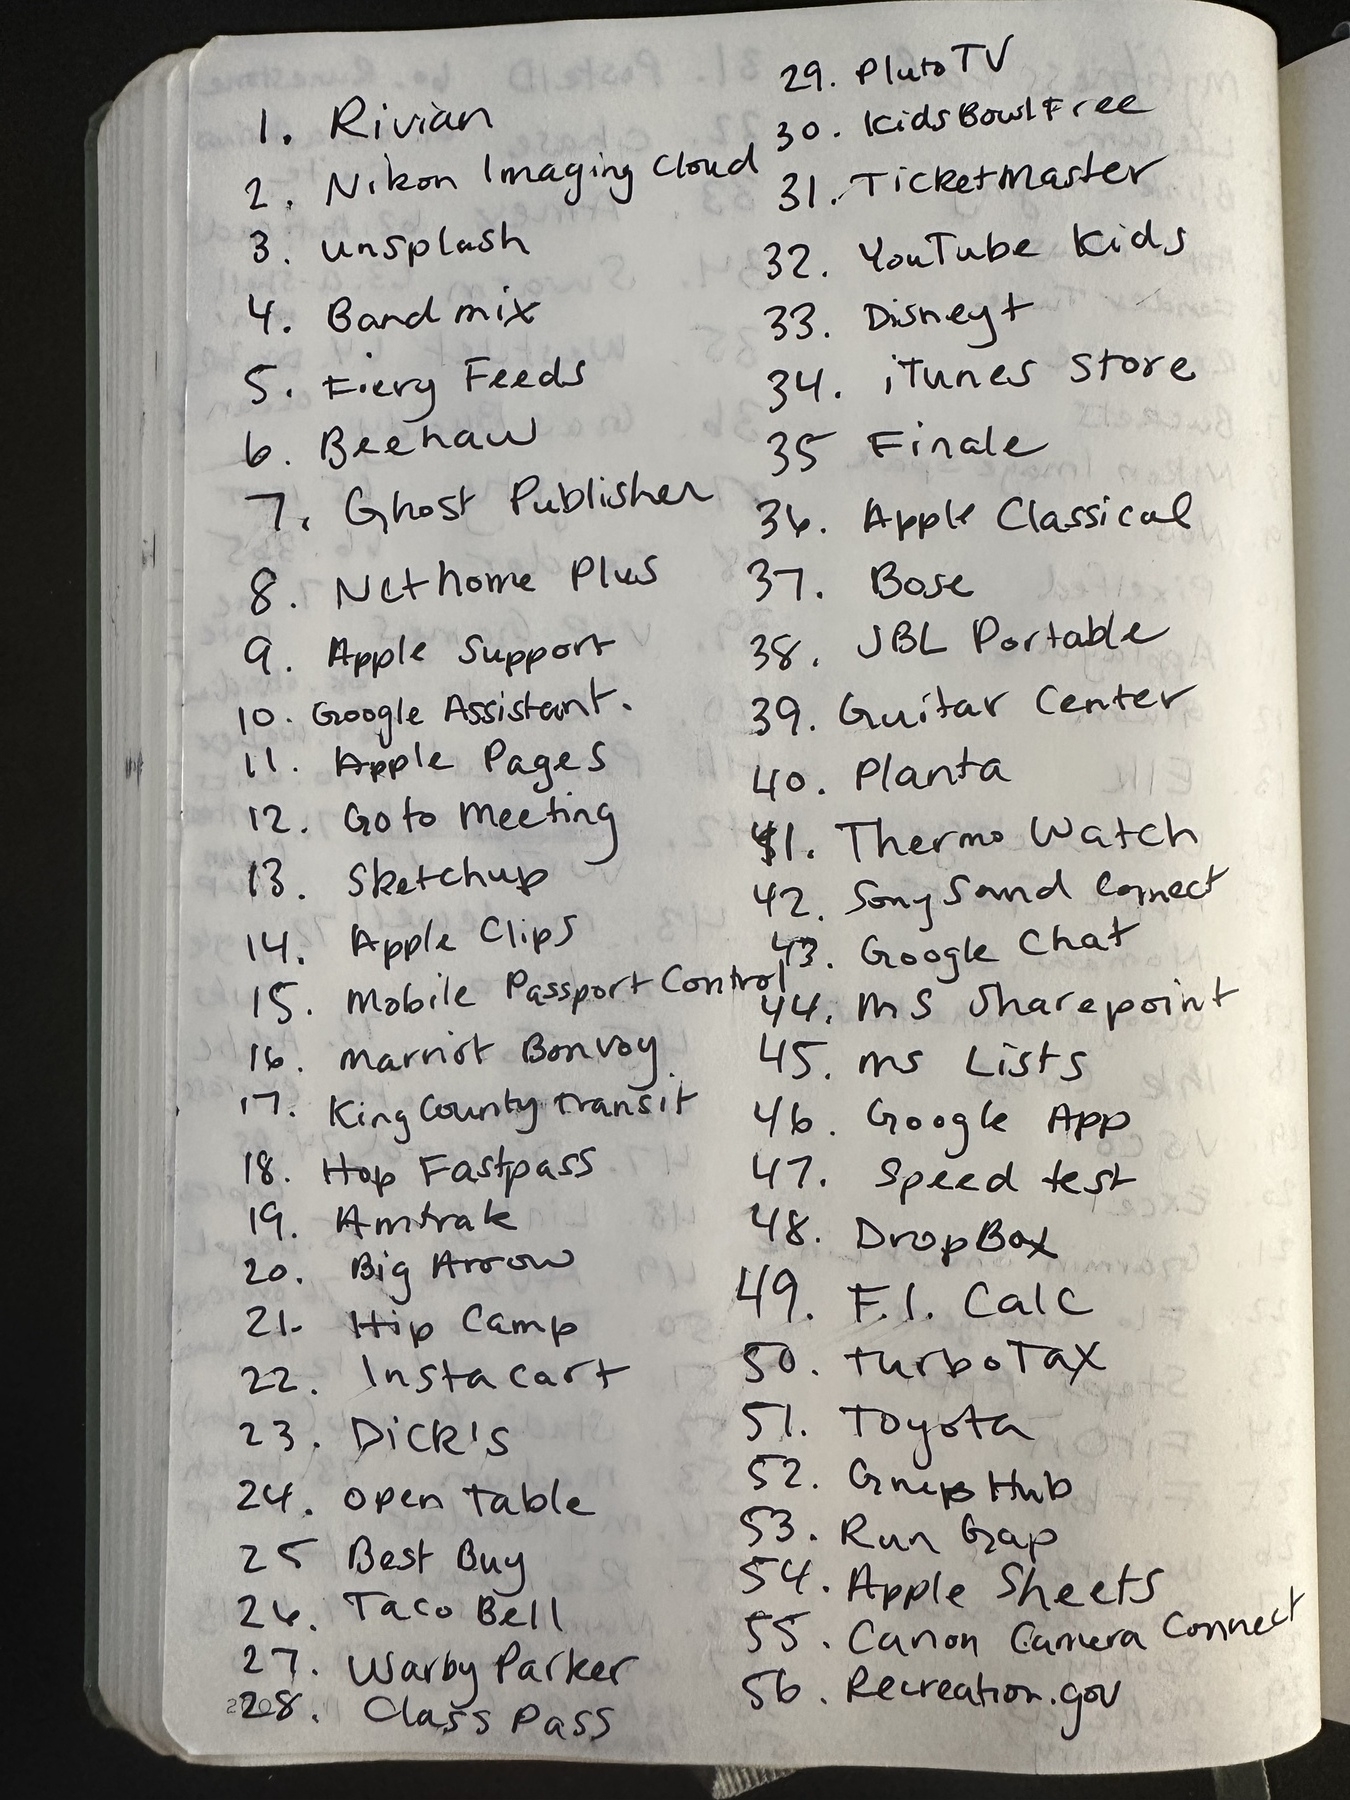 1. Rivian
2. Nikon Imaging Cloud
3. unsplash
4. Bandmix
5. Fiery Feeds
6. Beehaw
7. Ghost Publisher
8. Nethome Plus
9. Apple Support
10. Google Assistant.
11. Apple Pages
12. Goto Meeting
13. Sketchup
14. Apple Clips
15. Mobile Passport Control
16. Marriot Bonvoy
17. King County transit
18. Hop Fastpass
19. Amtrak
20. Big Arrow
21. Hip Camp
22. Instacart
23. Dick's
24. open table
25 Best Buy
26. Taco Bell
27. Warby Parker
28. Class Pass
29. Pluto TV
30. KidsBowlFree
31. TicketMaster
32. YouTube Kids
33. Disney+
34. iTunes Store
35 Finale
36. Apple Classical
37. Bose
38. JBL Portable
39. Guitar Center
40. Planta
41. Thermo Watch
42. Sony Sound Connect
43. Google Chat
44. MS Sharepoint
45. MS Lists
46. Google App
47. Speed test
48. DropBox
49. F.I. Calc
50. turboTax
51. Toyota
52. Hub
53. Run Gap
54. Apple Sheets
55. Canon Camera Connect
56. Recreation.gov